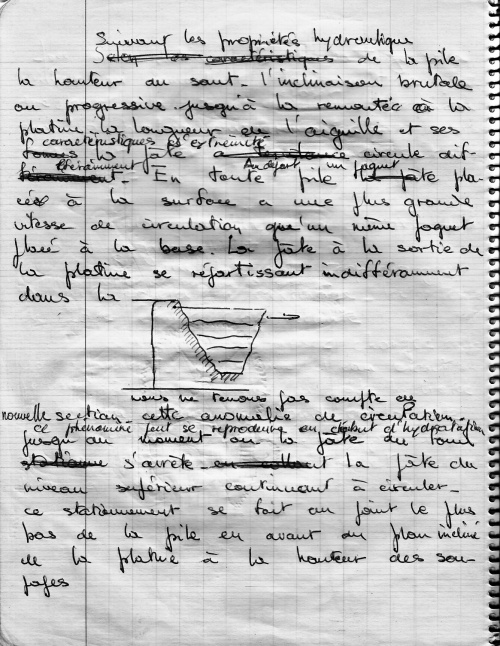 Suivant les propriétés hydraulique
Selon les caractéristiques de la pile
la hauteur du saut. l'inclinaison brutale
ou progressive jusqu'à la remontée à la
platine la longueur de l'aiguille et ses
caractéristiques d'extrémité
formes la pâte circule dif-
féremment Au départ un paquet
En toute pile la pâte pla-
cée à la surface a une plus grande
vitesse de circulation qu'un même paquet
placé à la base. La pâte à la sortie de
la platine se répartissant indifféramment
dans la
nous ne tenons pas compte de
nouvelle section cette anomalie de circulation.
ce phénomène peut se reproduire en début d'hydratation
jusqu'au moment où la pâte du fond
stationne s'arrête en collant la pâte du
niveau supérieur continuant à circuler.
ce stationnement se fait au point le plus
bas de la pile en avant du plan incliné
de la platine à la hauteur des sou-
papes